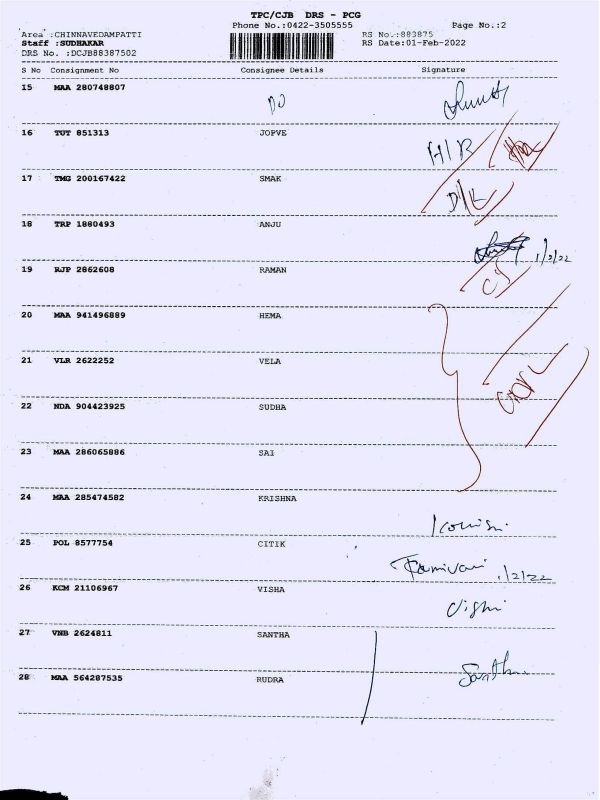 TPC/CJB DRS - PCG
Phone No.:0422-3505555 Page No.:2
Area :CHINNAVEDAMPATTI RS No.:883875
Staff :SUDHAKAR RS Date:01-Feb-2022
DRS No. :DCJB88387502
S No Consignment No Consignee Details Signature
15 MAA 280748807
16 TUT 851313 JOPVE
H/R
17 TMG 200167422 SMAK
D/L
18 TRP 1880493 ANJU
1/2/22
19 RJP 2862608 RAMAN
20 MAA 941496889 HEMA
21 VLR 2622252 VELA
22 NDA 904423925 SUDHA
23 MAA 286065886 SAI
24 MAA 285474582 KRISHNA
25 POL 8577754 CITIK
1/2/22
26 KCM 21106967 VISHA
27 VNB 2624811 SANTHA
28 MAA 564287535 RUDRA